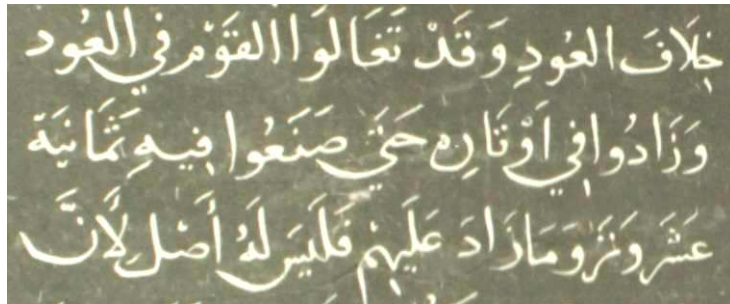 خِلَافَ العُودِ وَقَدْ تَغَالَوا القَوْم في العُود
وَزَادُوا في اَوْتَارِه حَتَّي صَنَعُوا فِيهِ ثَمَانِيَة
عَشَر وَتَرٍ وَمَا زَادَ عَلَيْهِمْ فَلَيسَ لَهُ أَصْل لِأَنَّ